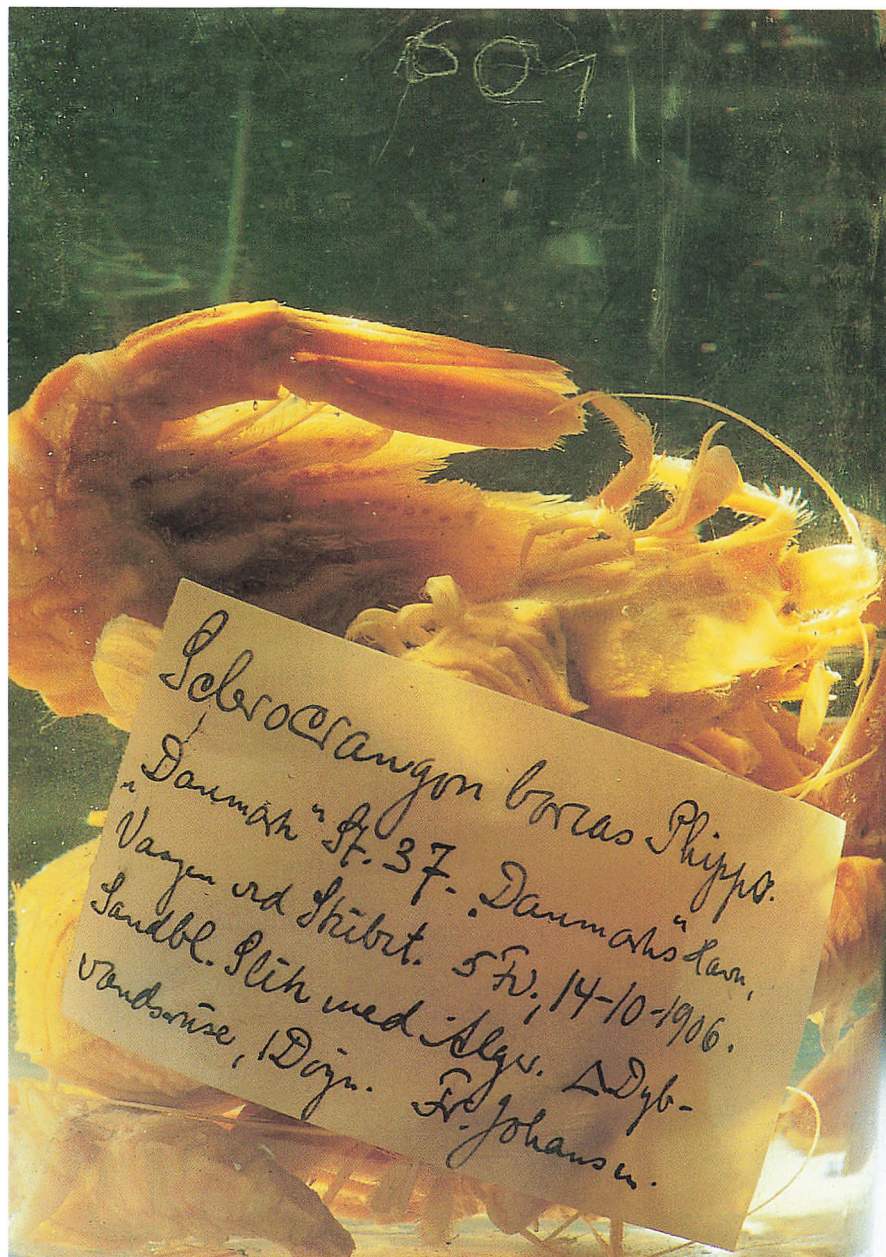 Sclerocrangon boreas Phipps.
„Danmark" St. 37. „Danmarks" Havn,
Vaagen ved Skibet. 5 Fv., 14-10-1906.
Sandbl. Slik med Alger. Δ Dyb-
vandsruse, 1 Døgn. Fr. Johansen.